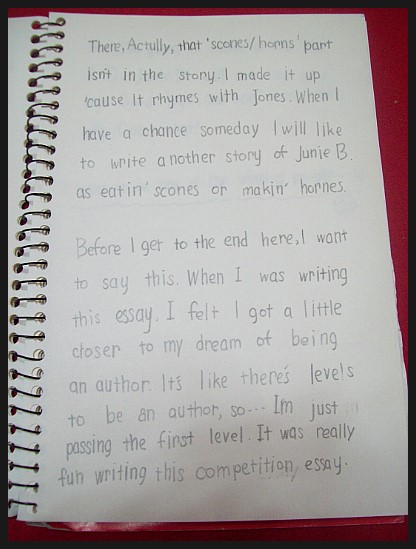 There, Actully, that 'scones/horns' part
isn't in the story. I made it up
'cause It rhymes with Jones. When I
have a chance someday I will like
to write another story of Junie B.
as eatin' scones or makin' hornes.
Before I get to the end here, I want
to say this. When I was writing
this essay. I felt I got a little
closer to my dream of being
an author. It's like there's levels
to be an author, so--- Im just
passing the first level. It was really
fun writing this competition, essay.